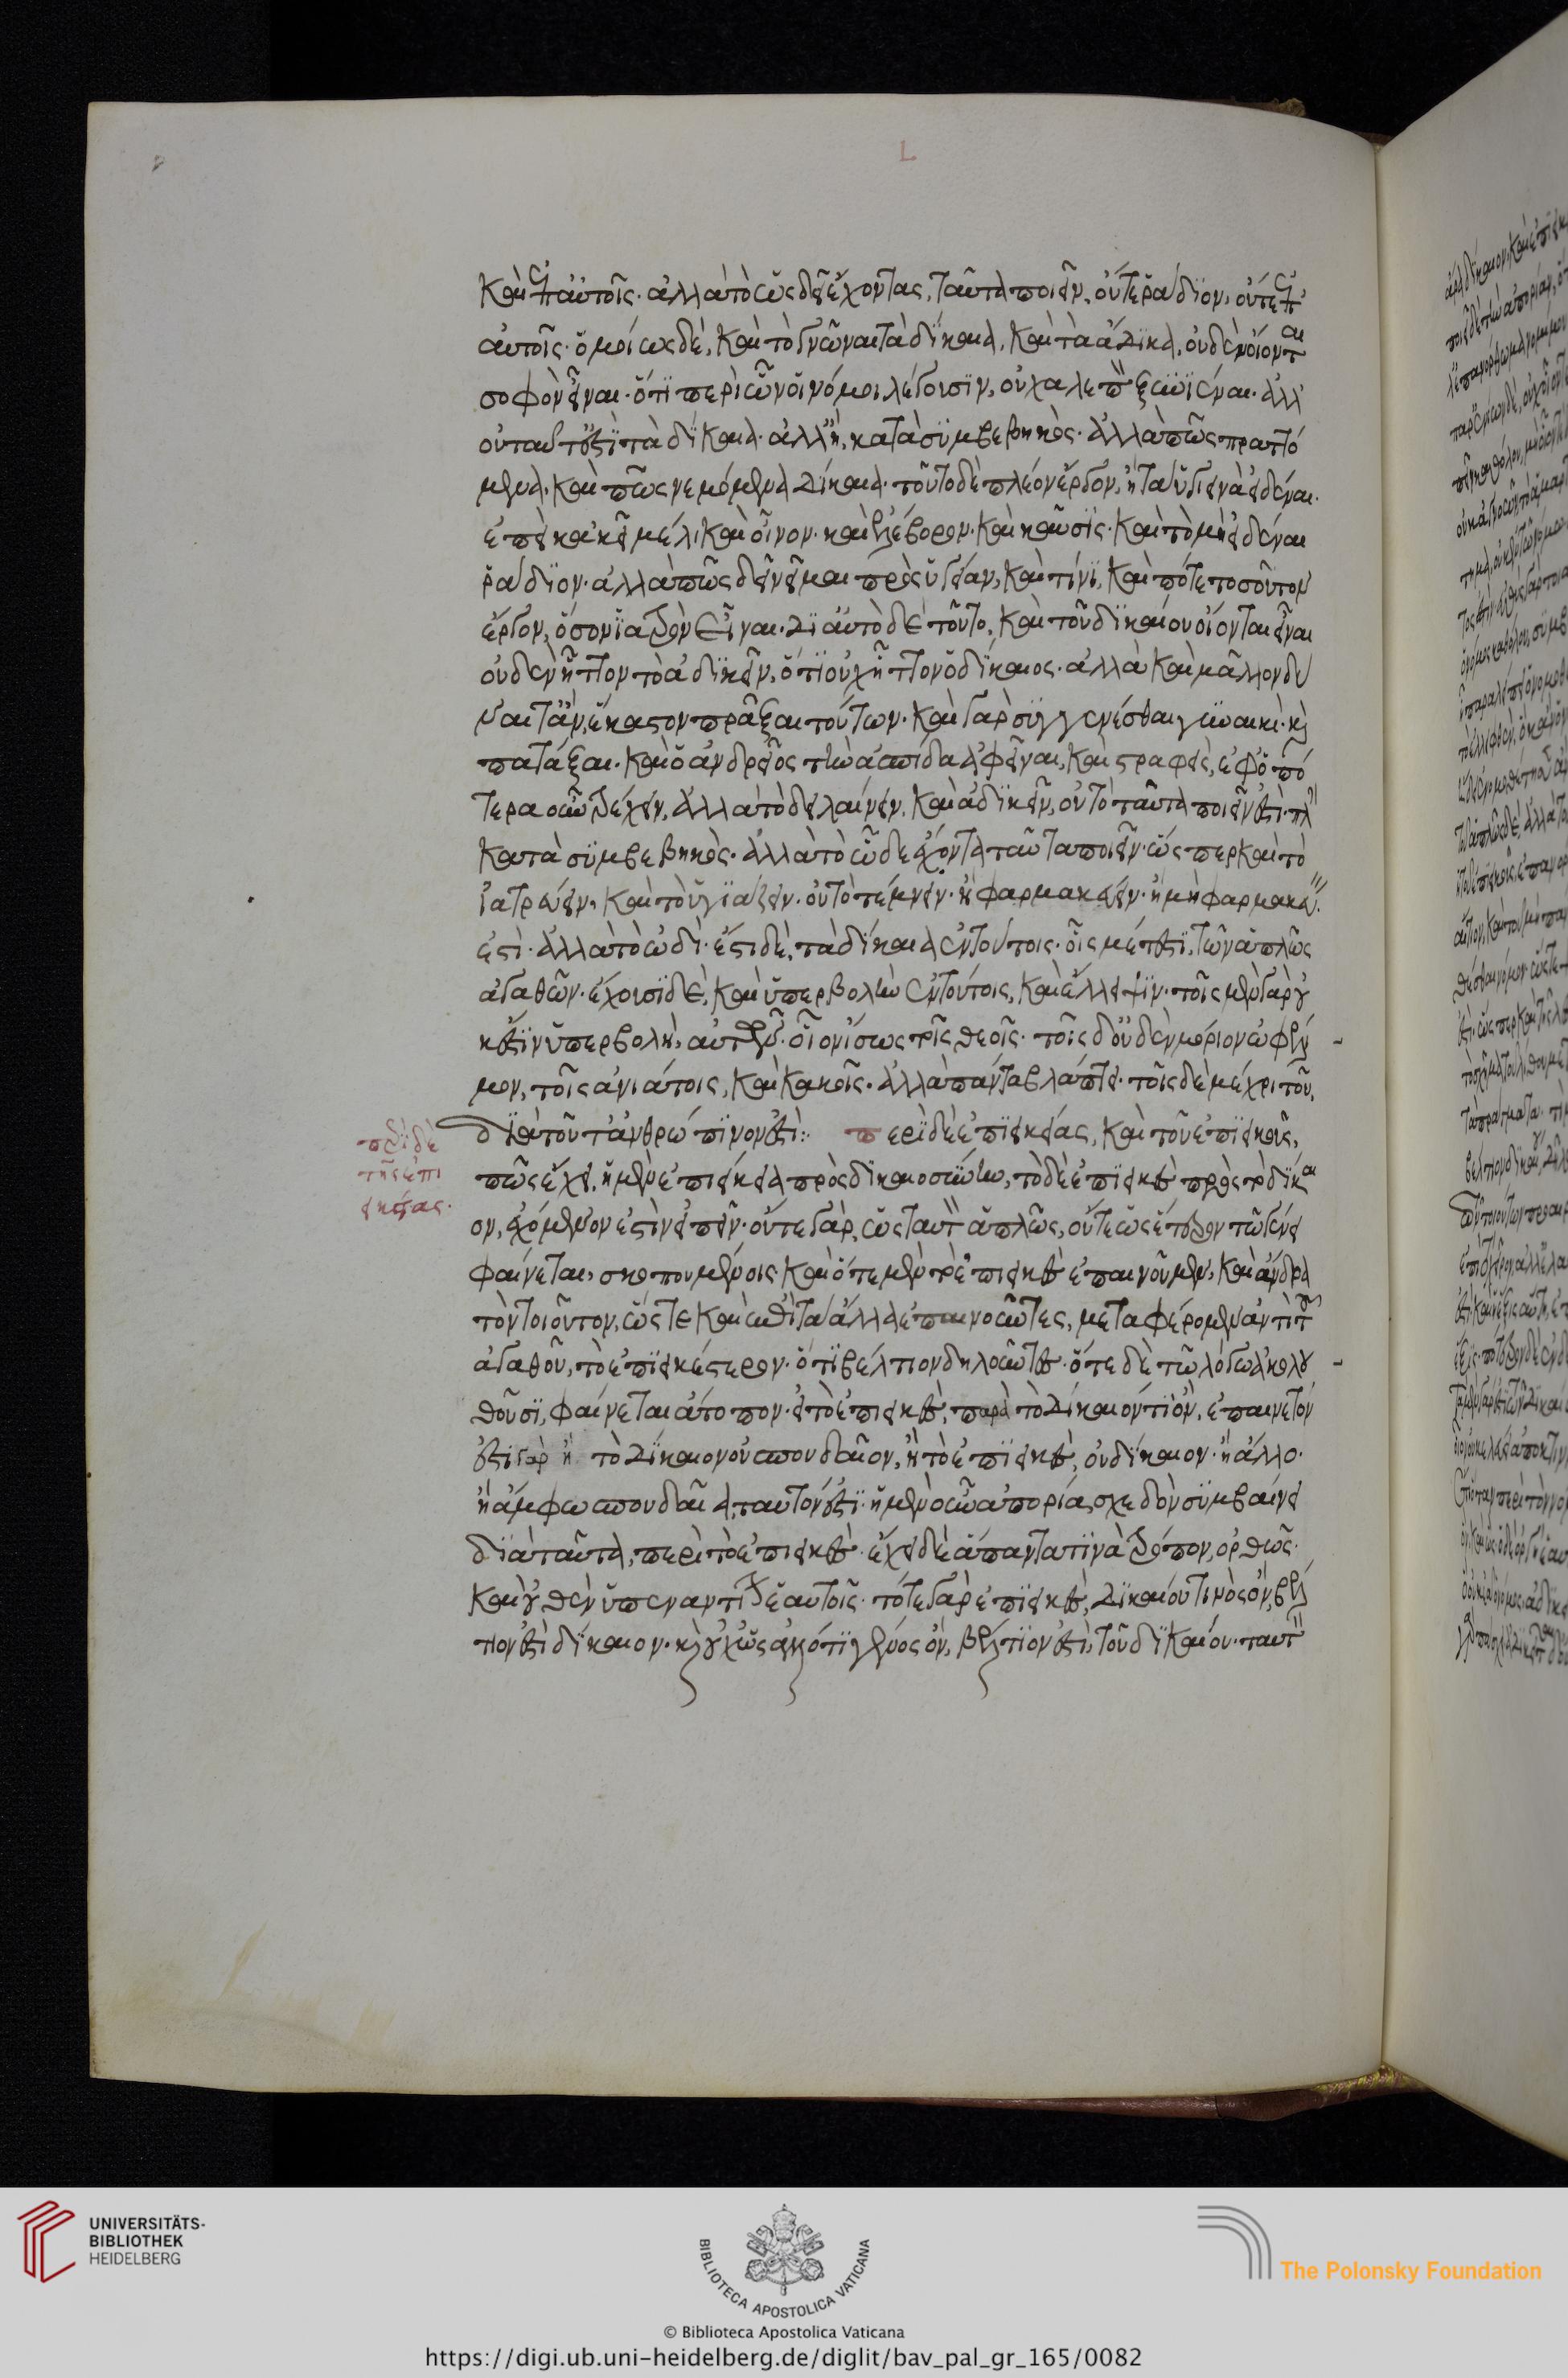 L
καὶ ἐπ' αὐτοῖς· ἀλλὰ τὸ ὡς δεῖ ἔχοντας, ταῦτα ποιεῖν, οὔτε ῥάδιον, οὔτε ἐπ'
αὐτοῖς· ὁμοίως δὲ, καὶ τὸ γνῶναι τὰ δίκαια, καὶ τὰ ἄδικα, οὐδὲν οἴονται
σοφὸν εἶναι· ὅτι περὶ ὧν οἱ νόμοι λέγουσιν, οὐ χαλεπὸν ξυνϊέναι· ἀλλ'
οὐ ταῦτ' ἐστὶ τὰ δίκαια· ἀλλ' ἢ, κατὰ συμβεβηκὸς· ἀλλὰ πῶς πραττό
μενα· καὶ πῶς νεμόμενα δίκαια· τοῦτο δὲ πλέον ἔργον, ἢ τὰ ὑγιεινὰ εἰδέναι·
ἐπεὶ κἀκεῖ μέλι καὶ οἶνον· καὶ ἐλλέβορον· καὶ καῦσις· καὶ τομὴ εἰδέναι
ῥάδιον· ἀλλὰ πῶς δεῖ νεῖμαι πρὸς ὑγείαν, καὶ τίνι, καὶ πότε τοσοῦτον
ἔργον, ὅσον ἰατρὸν εἶναι· δι' αὐτὸ δὲ τοῦτο, καὶ τοῦ δικαίου οἴονται εἶναι
οὐδὲν ἧττον τὸ ἀδικεῖν, ὅτι οὐχ ἧττον ὁ δίκαιος· ἀλλὰ καὶ μᾶλλον δύ
ναιτ' ἂν, ἕκαστον πρᾶξαι τούτων· καὶ γὰρ συγγενέσθαι γυναικὶ· καὶ
πατάξαι· καὶ ὁ ἀνδρεῖος τὴν ἀσπίδα ἀφεῖναι, καὶ στραφεὶς, ἐφ' ὁπό
τερα οὖν τρέχειν, ἀλλὰ τὸ δειλαίνειν, καὶ ἀδικεῖν, οὐ τὸ ταῦτα ποιεῖν ἐστὶ· πλὴν
κατὰ συμβεβηκὸς· ἀλλὰ τὸ ὧδε ἔχοντα ταῦτα ποιεῖν· ὥσπερ καὶ τὸ
ἰατρεύειν, καὶ τὸ ὑγιάζειν· οὐ τὸ τέμνειν· ἢ φαρμακεύειν· ἢ μὴ φαρμακεύειν
ἐστὶ· ἀλλὰ τὸ ὡδὶ· ἔστι δὲ, τὰ δίκαια ἐν τούτοις· οἷς μέτεστι, τῶν ἁπλῶς
ἀγαθῶν· ἔχουσι δὲ, καὶ ὑπερβολὴν ἐν τούτοις, καὶ ἔλλειψιν· τοῖς μὲν γὰρ οὐ
κ ἔστιν ὑπερβολὴ, αὐτῶν· οἷον ἴσως τοῖς θεοῖς· τοῖς δ' οὐδὲν μόριον ὠφέλι
μον, τοῖς ἀνιάτοις, καὶ κακοῖς· ἀλλὰ πάντα βλάπτει· τοῖς δὲ μέχρι τοῦ,
διὰ τοῦτ' ἀνθρώπινον ἐστὶ: περὶ δὲ ἐπιεικείας, καὶ τοῦ ἐπιεικοῦς,
περὶ δὲ
τῆς ἐπι
εικείας·
πῶς ἔχει, ἡ μὲν ἐπιείκεια πρὸς δικαιοσύνην, τὸ δὲ ἐπιεικὲς πρὸς τὸ δίκαι
ον, ἐχόμενον ἐστὶν εἰπεῖν· οὔτε γὰρ, ὡς ταυτὸν ἁπλῶς, οὔτε ὡς ἕτερον τῷ γένει
φαίνεται, σκοπουμένοις· καὶ ὁτὲ μὲν τὸ ἐπιεικὲς ἐπαινοῦμεν, καὶ ἄνδρα
τὸν τοιοῦτον, ὥστε καὶ ἐπὶ τὰ ἄλλα ἐπαινοῦντες, μεταφέρομεν ἀντὶ τοῦ
ἀγαθοῦ, τὸ ἐπιεικέστερον· ὅτι βέλτιον δηλοῦντες· ὁτὲ δὲ τῷ λόγῳ ἀκολου
θοῦσι, φαίνεται ἄτοπον· εἰ τὸ ἐπιεικὲς, παρὰ τὸ δίκαιόν τι ὂν, ἐπαινετόν
ἐστι γὰρ ἢ τὸ δίκαιον οὐ σπουδαῖον, ἢ τὸ ἐπιεικὲς, οὐ δίκαιον· ἢ ἄλλο·
ἢ ἄμφω σπουδαῖα, ταυτόν ἐστι· ἡ μὲν οὖν ἀπορία, σχεδὸν συμβαίνει
διὰ ταῦτα, περὶ τὸ ἐπιεικὲς· ἔχει δὲ ἅπαντα τινὰ τρόπον, ὀρθῶς·
καὶ οὐθὲν ὑπεναντίον ἑαυτοῖς· τό τε γὰρ ἐπιεικὲς, δικαίου τινὸς ὂν, βέλ
τιον ἐστὶ δίκαιον· καὶ οὐχ ὡς ἄλλο τι γένος ὂν, βέλτιον ἐστὶ, τοῦ δικαίου· ταυτὸν
UNIVERSITÄTS-
BIBLIOTHEK
HEIDELBERG
BIBLIOTECA APOSTOLICA VATICANA
The Polonsky Foundation
© Biblioteca Apostolica Vaticana
https://digi.ub.uni-heidelberg.de/diglit/bav_pal_gr_165/0082